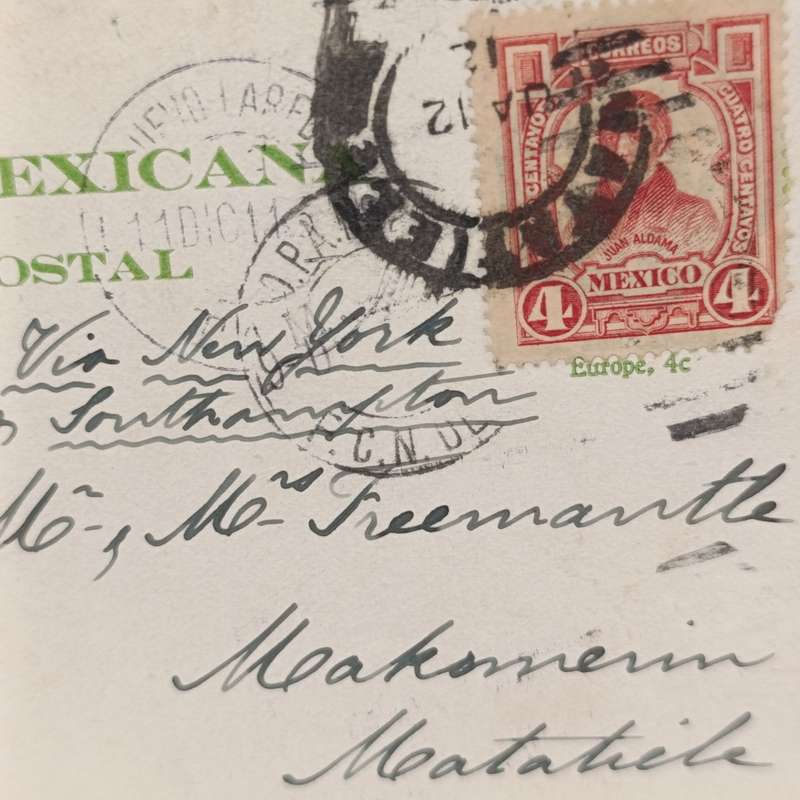 CORREOS
CENTAVOS CUATRO CENTAVOS
JUAN ALDAMA
MEXICO
4 4
Europe, 4c
JA 12
12
NUEVO LAREDO
11 DIC 11
EXICANA
OSTAL
C.N. DE
Via New York
Southampton
Mr, Mrs Freemantle
Makomerin
Matatiele